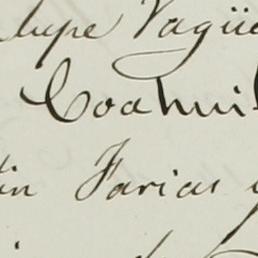 lupe Vagüe
Coahuil
tin Farias y